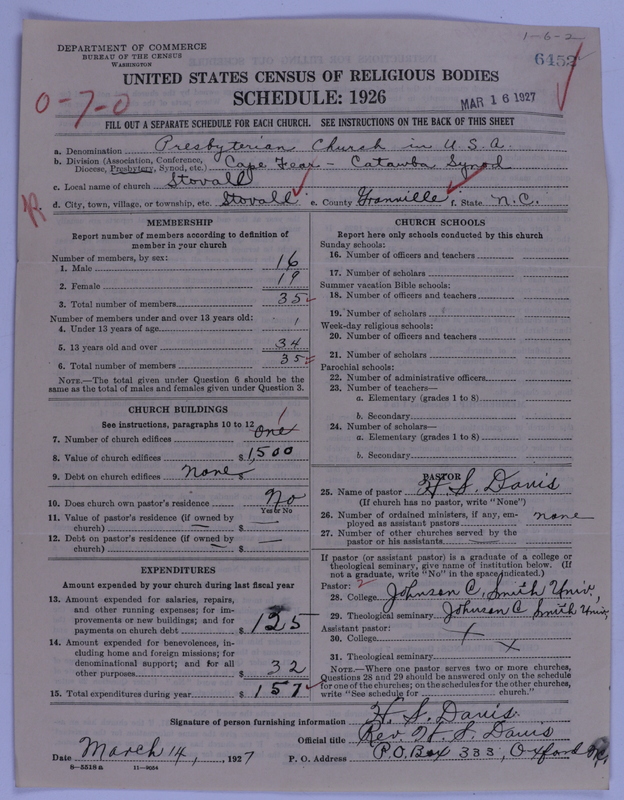 1-6-2
DEPARTMENT OF COMMERCE
BUREAU OF THE CENSUS
WASHINGTON
6453
UNITED STATES CENSUS OF RELIGIOUS BODIES
SCHEDULE: 1926
MAR 16 1927
0-7-0
FILL OUT A SEPARATE SCHEDULE FOR EACH CHURCH. SEE INSTRUCTIONS ON THE BACK OF THIS SHEET
a. Denomination Presbyterian Church in U.S.A.
b. Division (Association, Conference, Diocese, Presbytery, Synod, etc.) Cape Fear - Catawba Synod
c. Local name of church Stovall
d. City, town, village, or township, etc. Stovall e. County Granville f. State N.C.
MEMBERSHIP
Report number of members according to definition of
member in your church
Number of members, by sex:
1. Male 16
2. Female 19
3. Total number of members 35
Number of members under and over 13 years old:
4. Under 13 years of age 1
5. 13 years old and over 34
6. Total number of members 35
NOTE.—The total given under Question 6 should be the
same as the total of males and females given under Question 3.
CHURCH BUILDINGS
See instructions, paragraphs 10 to 12
7. Number of church edifices one 1
8. Value of church edifices $ 1,500
9. Debt on church edifices none $
10. Does church own pastor's residence No
Yes or No
11. Value of pastor's residence (if owned by
church) — $ —
12. Debt on pastor's residence (if owned by
church) — $ —
EXPENDITURES
Amount expended by your church during last fiscal year
13. Amount expended for salaries, repairs,
and other running expenses; for im-
provements or new buildings; and for
payments on church debt $ 125
14. Amount expended for benevolences, in-
cluding home and foreign missions; for
denominational support; and for all
other purposes $ 32
15. Total expenditures during year $ 157
CHURCH SCHOOLS
Report here only schools conducted by this church
Sunday schools:
16. Number of officers and teachers
17. Number of scholars
Summer vacation Bible schools:
18. Number of officers and teachers
19. Number of scholars
Week-day religious schools:
20. Number of officers and teachers
21. Number of scholars
Parochial schools:
22. Number of administrative officers
23. Number of teachers—
a. Elementary (grades 1 to 8)
b. Secondary
24. Number of scholars—
a. Elementary (grades 1 to 8)
b. Secondary
PASTOR
25. Name of pastor H. S. Davis
(If church has no pastor, write "None")
26. Number of ordained ministers, if any, em-
ployed as assistant pastors none
27. Number of other churches served by the
pastor or his assistants
If pastor (or assistant pastor) is a graduate of a college or
theological seminary, give name of institution below. (If
not a graduate, write "No" in the space indicated.)
Pastor: 2
28. College Johnson C. Smith Univ.,
29. Theological seminary Johnson C Smith Univ,
Assistant pastor:
30. College x
31. Theological seminary x
NOTE.—Where one pastor serves two or more churches,
Questions 28 and 29 should be answered only on the schedule
for one of the churches; on the schedules for the other churches,
write "See schedule for church."
Signature of person furnishing information H. S. Davis
Official title Rev. H. S. Davis
Date March 14, 1927 P. O. Address P.O. Box 333, Oxford N.C.
8-5518 a 11-9054